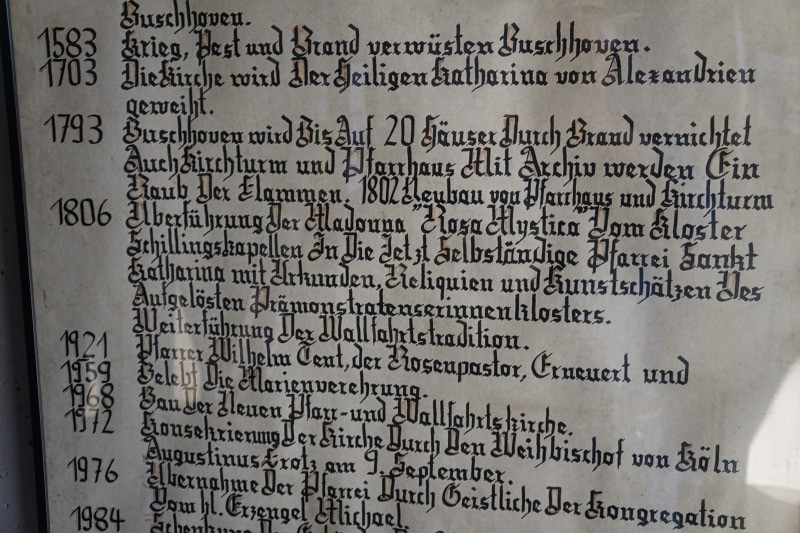 Buschhoven.
1583 Krieg, Pest und Brand verwüsten Buschhoven.
1703 Die Kirche wird Der Heiligen Katharina von Alexandrien
geweiht.
1793 Buschhoven wird Bis Auf 20 Häuser Durch Brand vernichtet
Auch Kirchturm und Pfarrhaus Mit Archiv werden Ein
Raub Der Flammen. 1802 Neubau von Pfarrhaus und Kirchturm
1806 Überführung Der Madonna "Rosa Mystica" Vom Kloster
Schillingskapellen In Die Jetzt Selbständige Pfarrei Sankt
Katharina mit Urkunden, Reliquien und Kunstschätzen Des
Aufgelösten Prämonstratenserinnenklosters.
Weiterführung Der Wallfahrtstradition.
1921 Pfarrer Wilhelm Tent, der Rosenpastor, Erneuert und
1959 Belebt Die Marienverehrung.
1968 Bau Der Neuen Pfarr- und Wallfahrtskirche.
1972 Konsekrierung Der Kirche Durch Den Weihbischof von Köln
Augustinus Frotz am 9. September.
1976 Übernahme Der Pfarrei Durch Geistliche Der Kongregation
Vom hl. Erzengel Michael.
1984 Schenkung